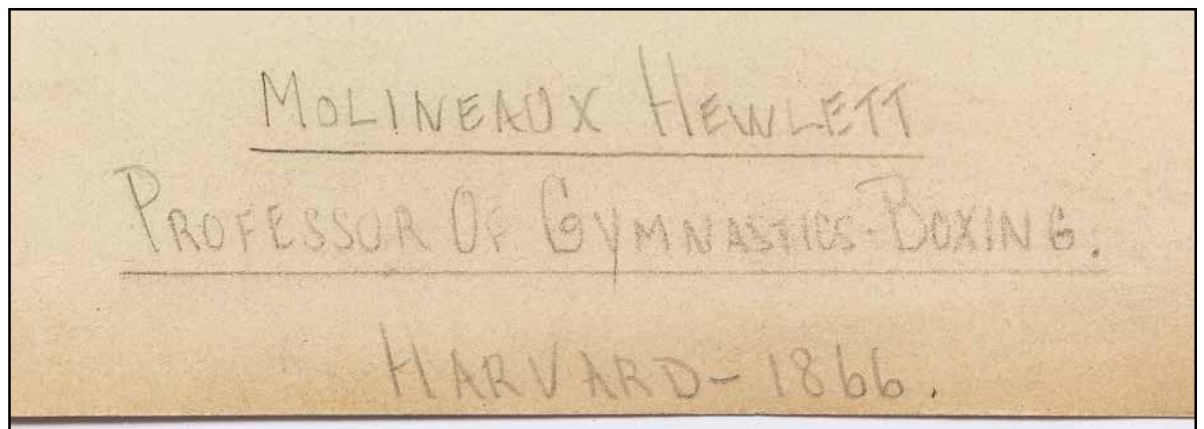 MOLINEAUX HEWLETT
PROFESSOR OF GYMNASTICS-BOXING.
HARVARD-1866.